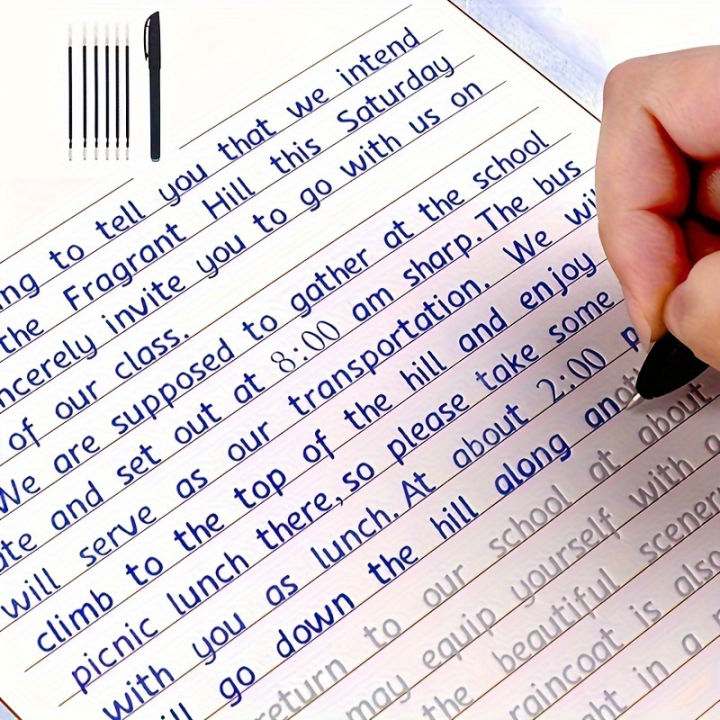 ng to tell you that we intend
the Fragrant Hill this Saturday
ncerely invite you to go with us on
of our class.
We are supposed to gather at the school
ate and set out at 8:00 am sharp. The bus
will serve as our transportation. We wil
climb to the top of the hill and enjoy
picnic lunch there, so please take some
with you as lunch. At about 2:00 p
ill go down the hill along anot
return to our school at about
may equip yourself with a
the beautiful scener
raincoat is also
ht in a